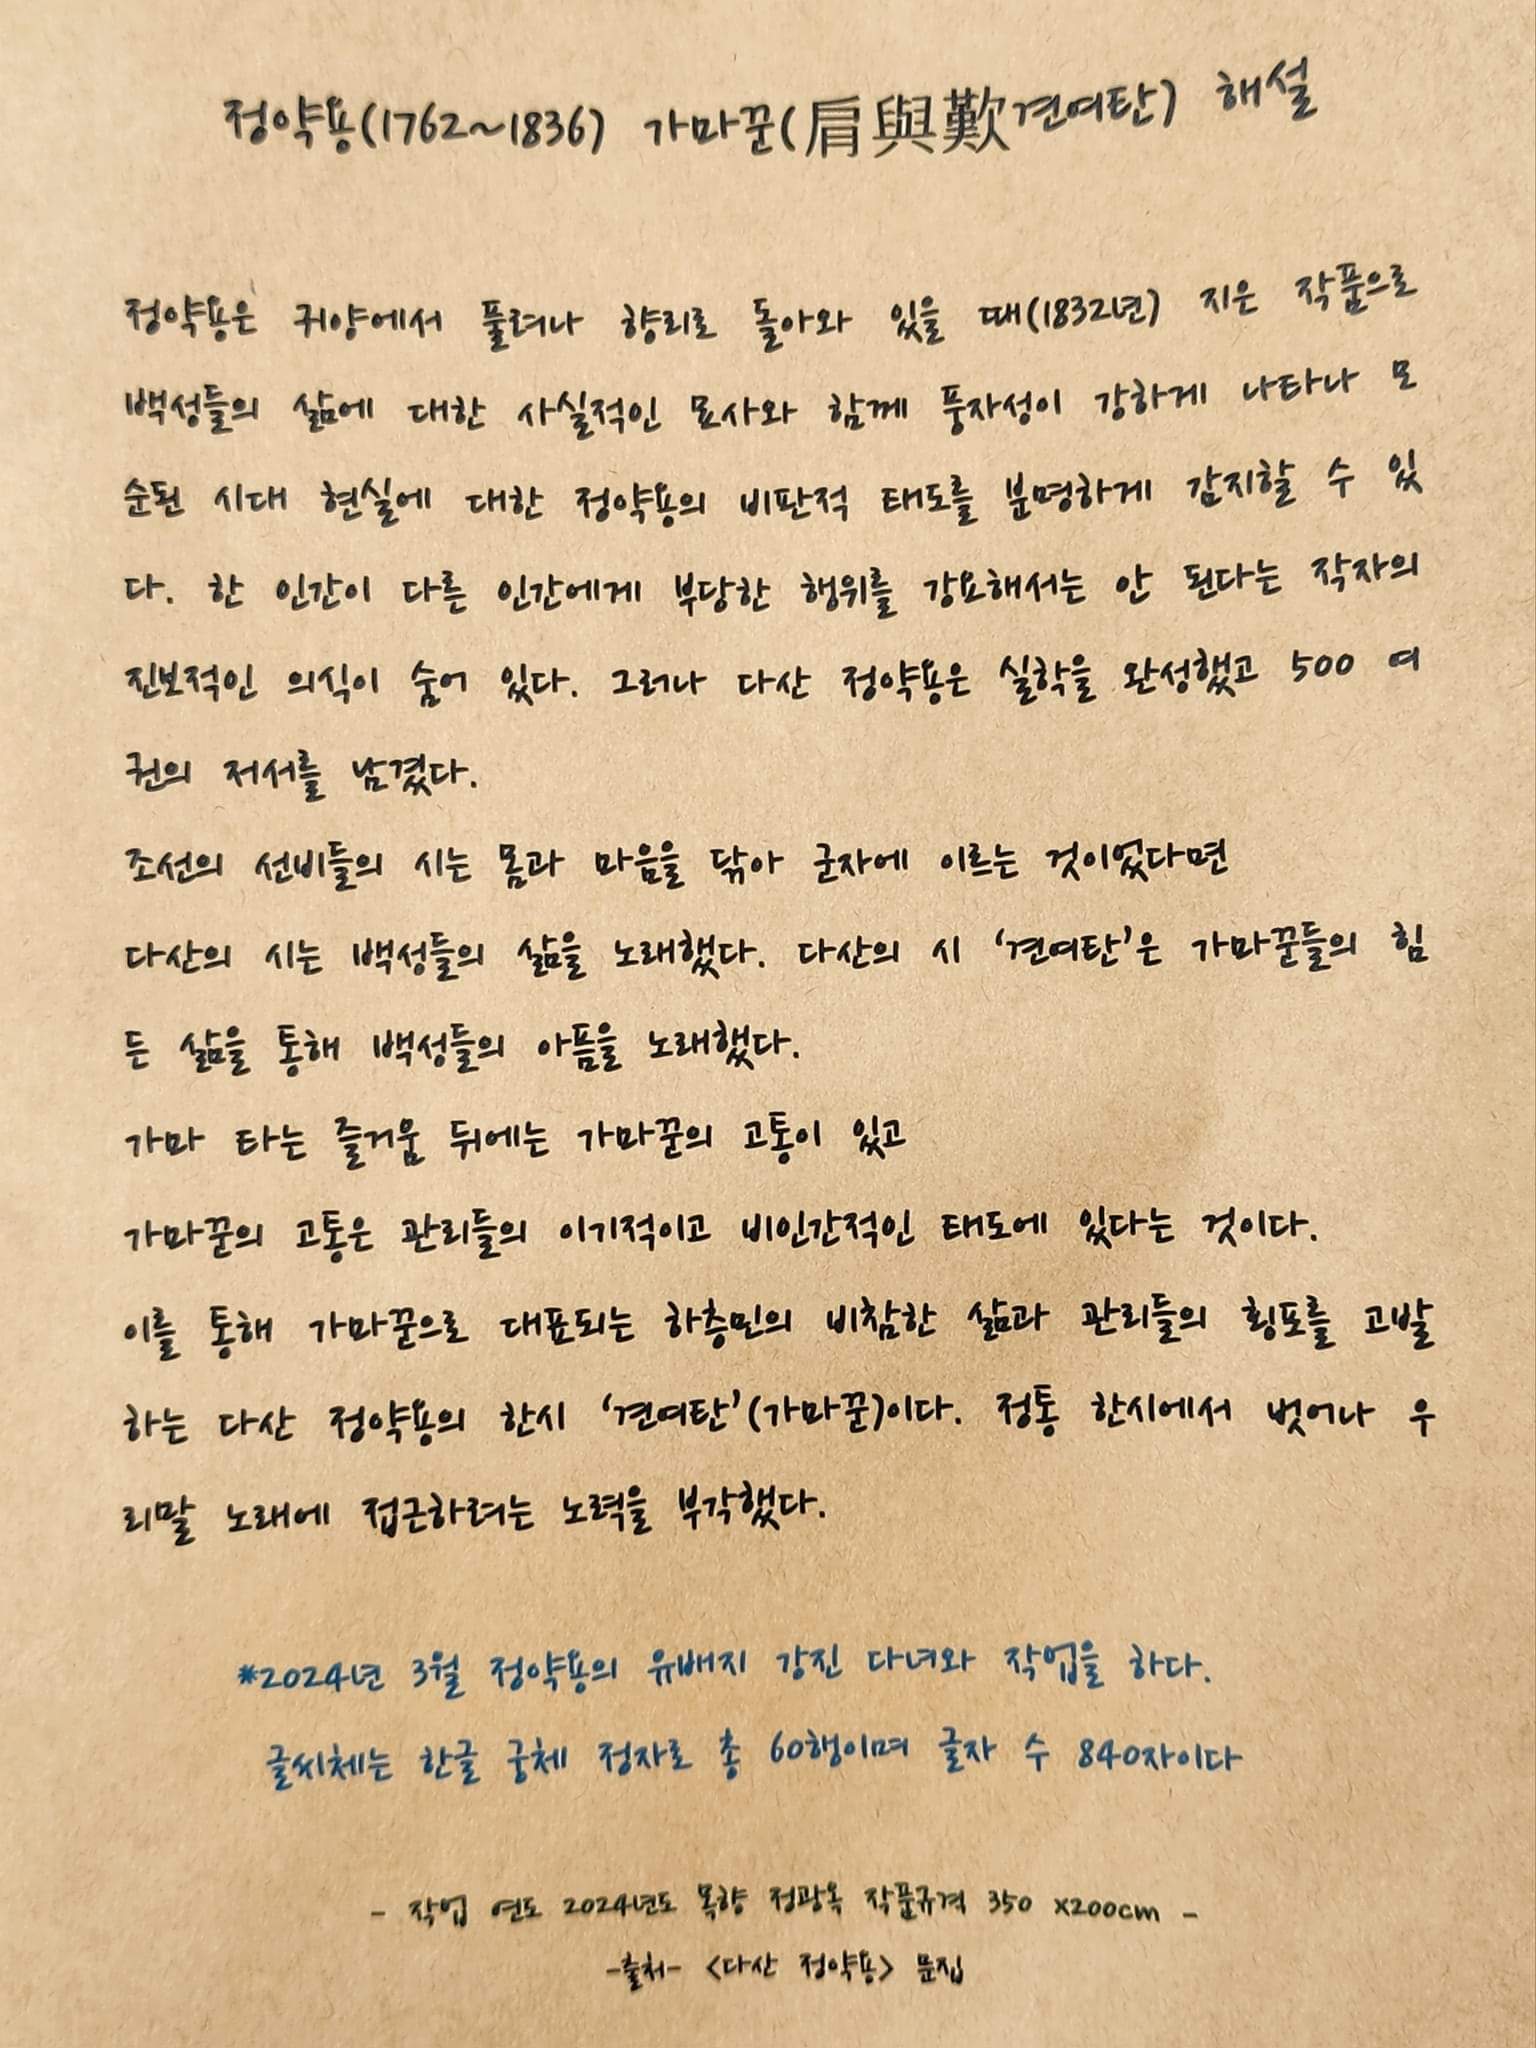 정약용(1762~1836) 가마꾼(肩與歎견여탄) 해설
정약용은 귀양에서 풀려나 향리로 돌아와 있을 때(1832년) 지은 작품으로
백성들의 삶에 대한 사실적인 묘사와 함께 풍자성이 강하게 나타나 모
순된 시대 현실에 대한 정약용의 비판적 태도를 분명하게 감지할 수 있
다. 한 인간이 다른 인간에게 부당한 행위를 강요해서는 안 된다는 작자의
진보적인 의식이 숨어 있다. 그러나 다산 정약용은 실학을 완성했고 500 여
권의 저서를 남겼다.
조선의 선비들의 시는 몸과 마음을 닦아 군자에 이르는 것이었다면
다산의 시는 백성들의 삶을 노래했다. 다산의 시 ‘견여탄’은 가마꾼들의 힘
든 삶을 통해 백성들의 아픔을 노래했다.
가마 타는 즐거움 뒤에는 가마꾼의 고통이 있고
가마꾼의 고통은 관리들의 이기적이고 비인간적인 태도에 있다는 것이다.
이를 통해 가마꾼으로 대표되는 하층민의 비참한 삶과 관리들의 횡포를 고발
하는 다산 정약용의 한시 ‘견여탄’(가마꾼)이다. 정통 한시에서 벗어나 우
리말 노래에 접근하려는 노력을 부각했다.
*2024년 3월 정약용의 유배지 강진 다녀와 작업을 하다.
글씨체는 한글 궁체 정자로 총 60행이며 글자 수 840자이다
- 작업 연도 2024년도 목향 정광옥 작품규격 350 x200cm -
-출처- <다산 정약용> 문집